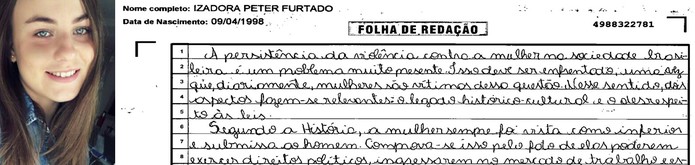 Nome completo: IZADORA PETER FURTADO
Data de Nascimento: 09/04/1998
FOLHA DE REDAÇÃO
4988322781
1 A persistência da violência contra a mulher na sociedade brasi-
2 leira é um problema muito presente. Isso deve ser enfrentado, uma vez
3 que, diariamente, mulheres são vítimas dessa questão. Nesse sentido, dois
4 aspectos fazem-se relevantes: o legado histórico-cultural e o desrespei-
5 to às leis.
6 Segundo a História, a mulher sempre foi vista como inferior
7 e submissa ao homem. Comprova-se isso pelo fato de elas poderem
8 exercer direitos políticos, ingressarem no mercado de trabalho e es